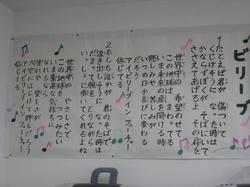 ビリーブ
1.たとえば君が 傷ついて
くじけそうに なった時は
かならずぼくが そばにいて
ささえてあげるよ その肩を
世界中の 希望のせて
この地球は まわってる
いま未来の扉を開ける時
悲しみや 苦しみが
いつの日か 喜びに変わる
だろう
アイ ビリーブ イン フューチャー
信じてる
2.もしも誰かが 君のそばで
泣き出しそうに なった時は
だまって腕を とりながら
いっしょに歩いて くれるよね
世界中の やさしさで
この地球を つつみたい
いま素直な 気持ちに
なれるなら
アイ ビリーブ イン フューチャー
信じてる